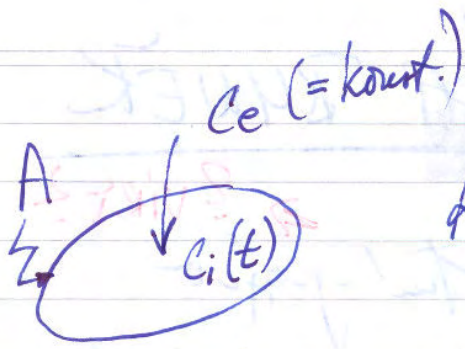 Ce (= konst.)
A
Ci(t)